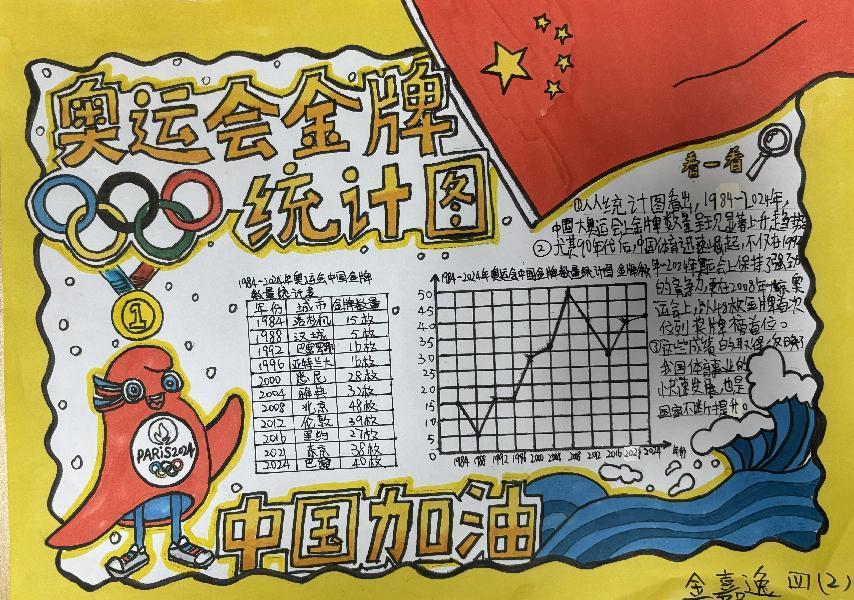 奥运会金牌
统计图
1
PARIS2024
1984-2024年奥运会中国金牌
数量统计表
年份 城市 金牌数量
1984 洛杉矶 15枚
1988 汉城 5枚
1992 巴塞罗那 16枚
1996 亚特兰大 16枚
2000 悉尼 28枚
2004 雅典 32枚
2008 北京 48枚
2012 伦敦 39枚
2016 里约 27枚
2021 东京 38枚
2024 巴黎 40枚
1984-2024年奥运会中国金牌数量统计图
50
45
40
35
30
25
20
15
10
5
0
1984 1988 1992 1996 2000 2004 2008 2012 2016 2021 2024 年份
看一看
①从统计图看出,1984-2024年,
中国大奥运会上金牌数量呈现显著上升趋势
②尤其90年代后,中国体育迅速崛起,不仅在1992
年-2024年奥运会上保持了强劲
的竞争力,更在2008年
运会上,以48枚金牌首次
位列奖牌榜首位。
③这些成绩的取得
我国体育事业的
快速发展,也是
国家不断提升。
中国加油
金嘉逸 四(2)